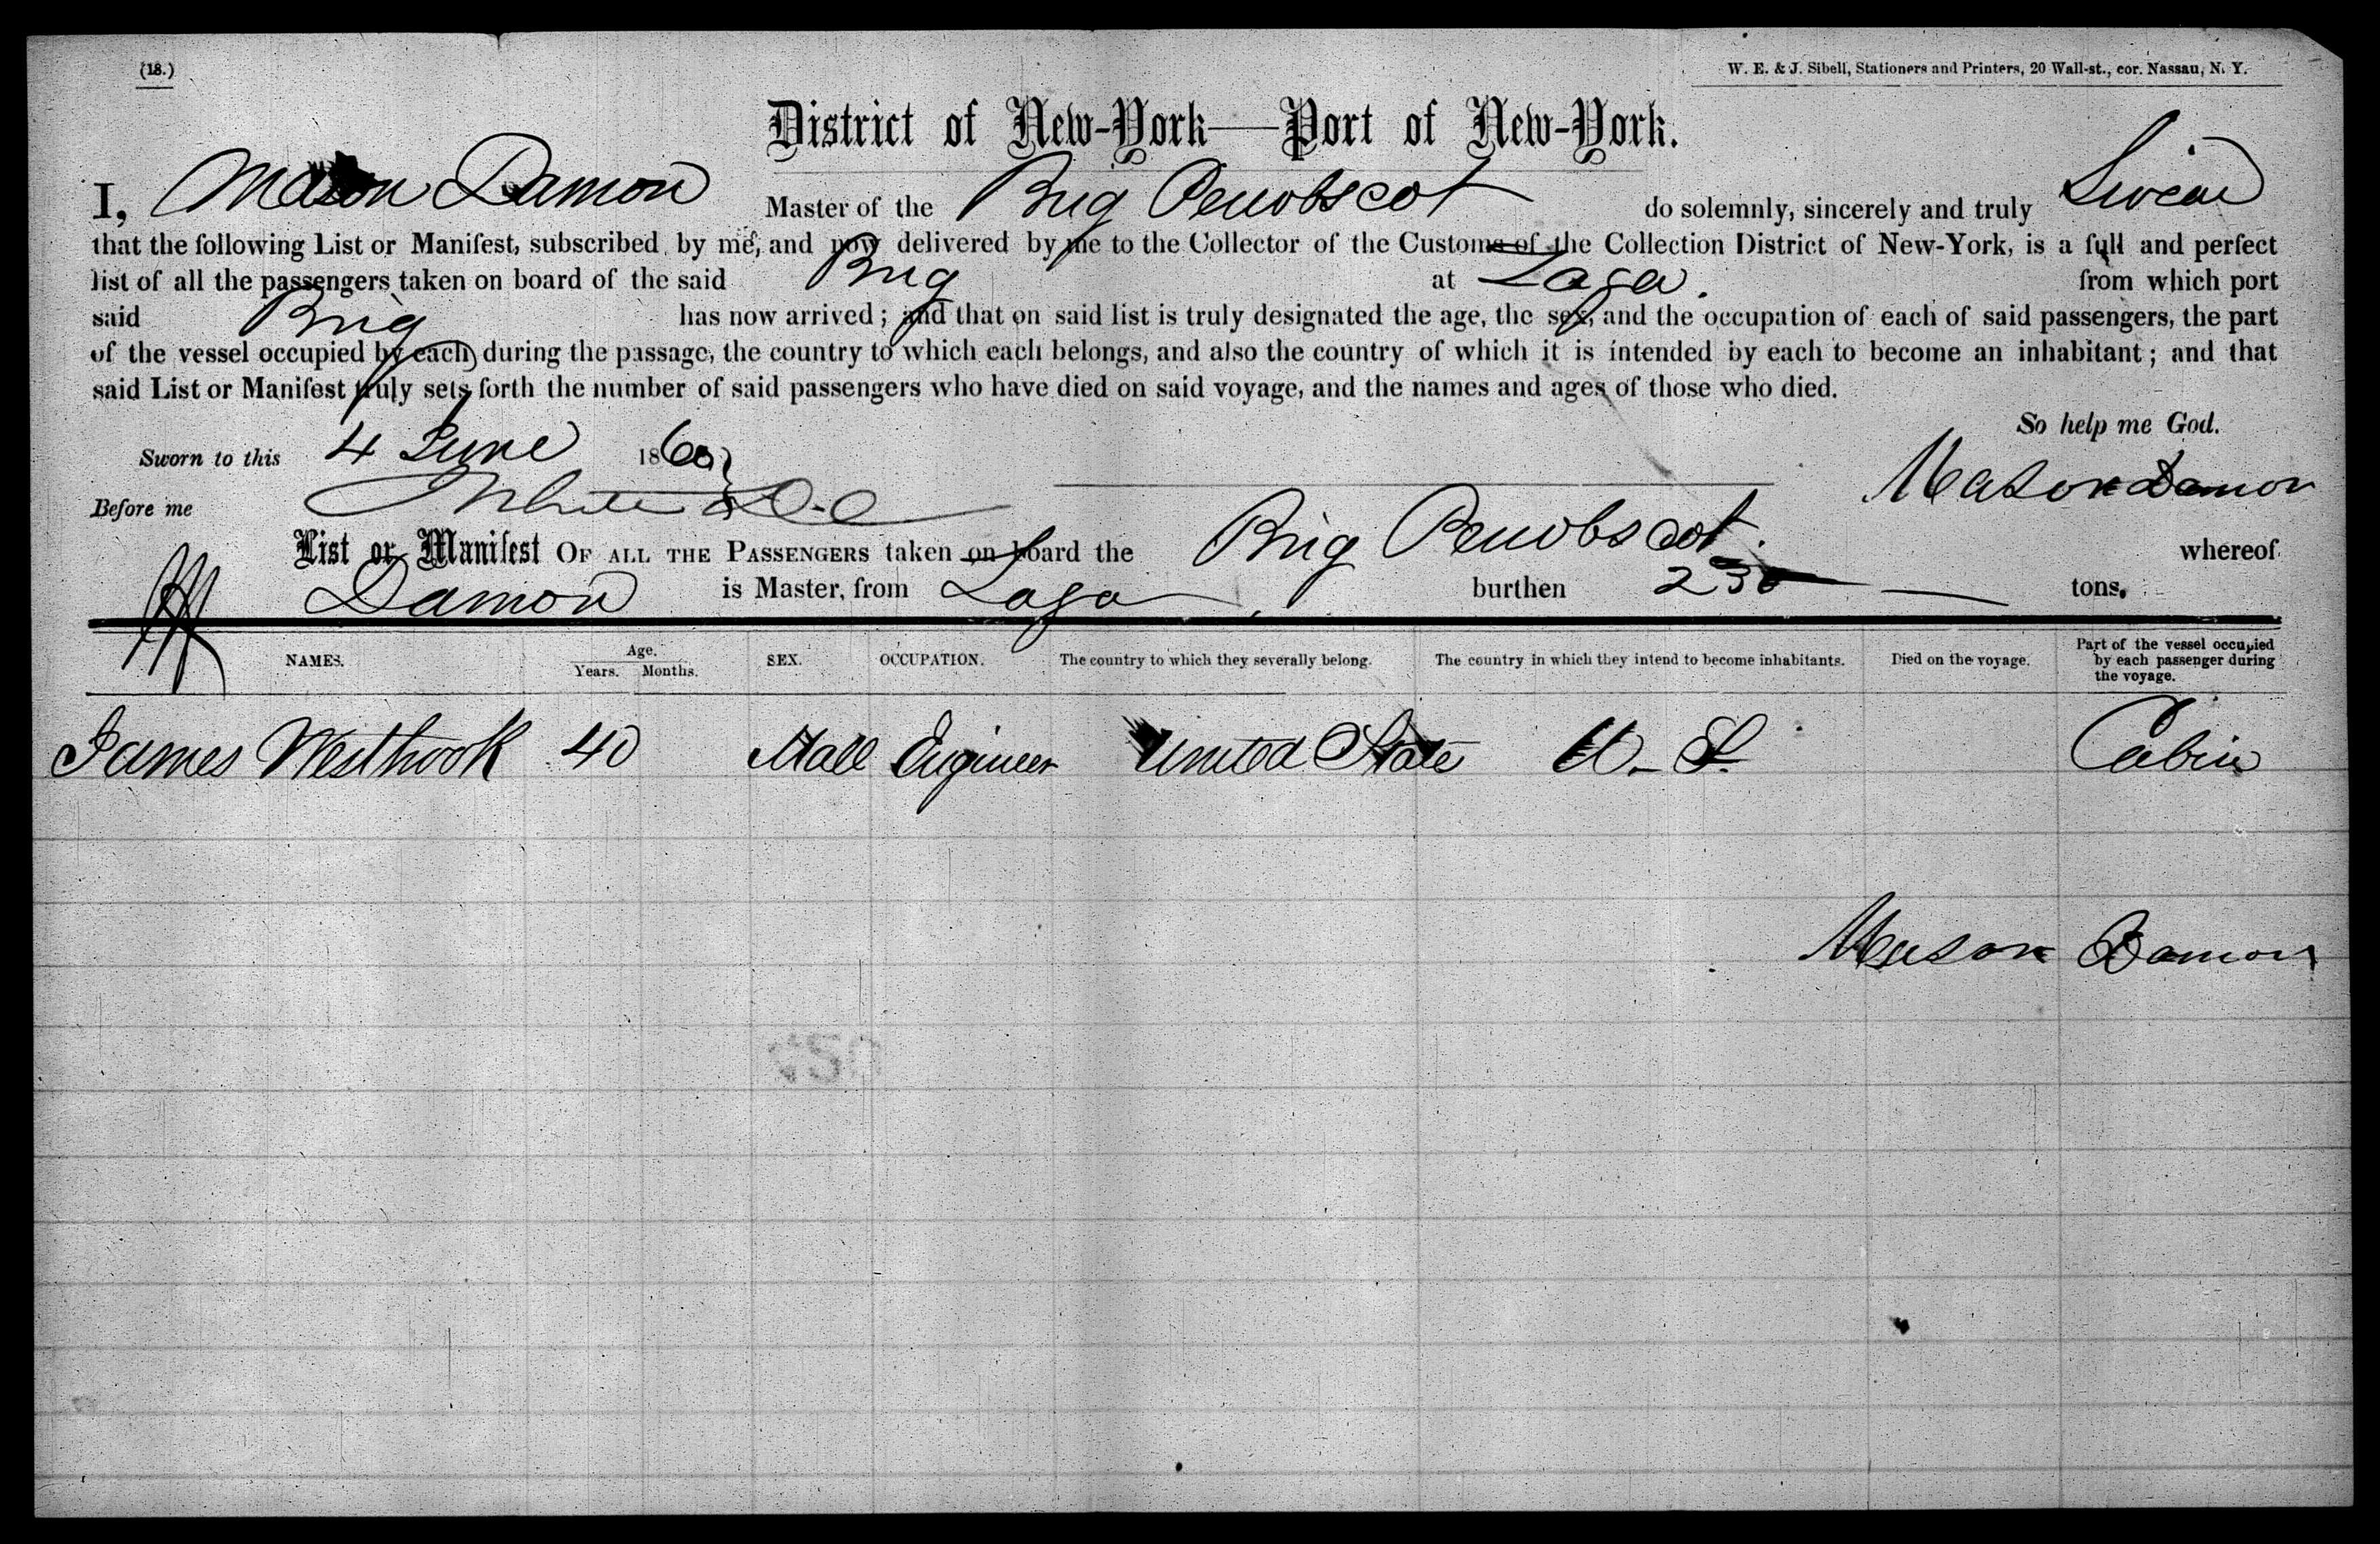 (18.)
W. E. & J. Sibell, Stationers and Printers, 20 Wall-st., cor. Nassau, N. Y.
District of New-York—Port of New-York.
I, Mason Damon Master of the Brig Penobscot do solemnly, sincerely and truly Swear
that the following List or Manifest, subscribed by me, and now delivered by me to the Collector of the Customs of the Collection District of New-York, is a full and perfect
list of all the passengers taken on board of the said Brig at from which port
said Brig has now arrived; and that on said list is truly designated the age, the sex, and the occupation of each of said passengers, the part
of the vessel occupied by each during the passage, the country to which each belongs, and also the country of which it is intended by each to become an inhabitant; and that
said List or Manifest truly sets forth the number of said passengers who have died on said voyage, and the names and ages of those who died.
So help me God.
Sworn to this 4 June 1860
Mason Damon
Before me White
List or Manifest OF ALL THE PASSENGERS taken on board the Brig Penobscot whereof
Damon is Master, from burthen 230 tons.
NAMES. Age. Years. Months. SEX. OCCUPATION. The country to which they severally belong. The country in which they intend to become inhabitants. Died on the voyage. Part of the vessel occupied by each passenger during the voyage.
James Westbrook 40 Male Engineer United State U. S. Cabin
Mason Damon